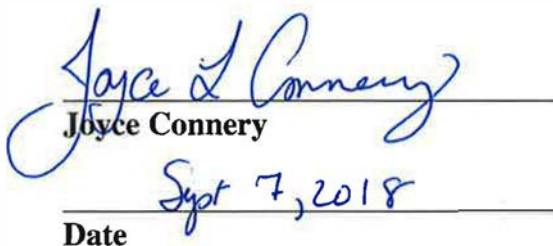 Joyce L Connery
Joyce Connery
Sept 7, 2018
Date